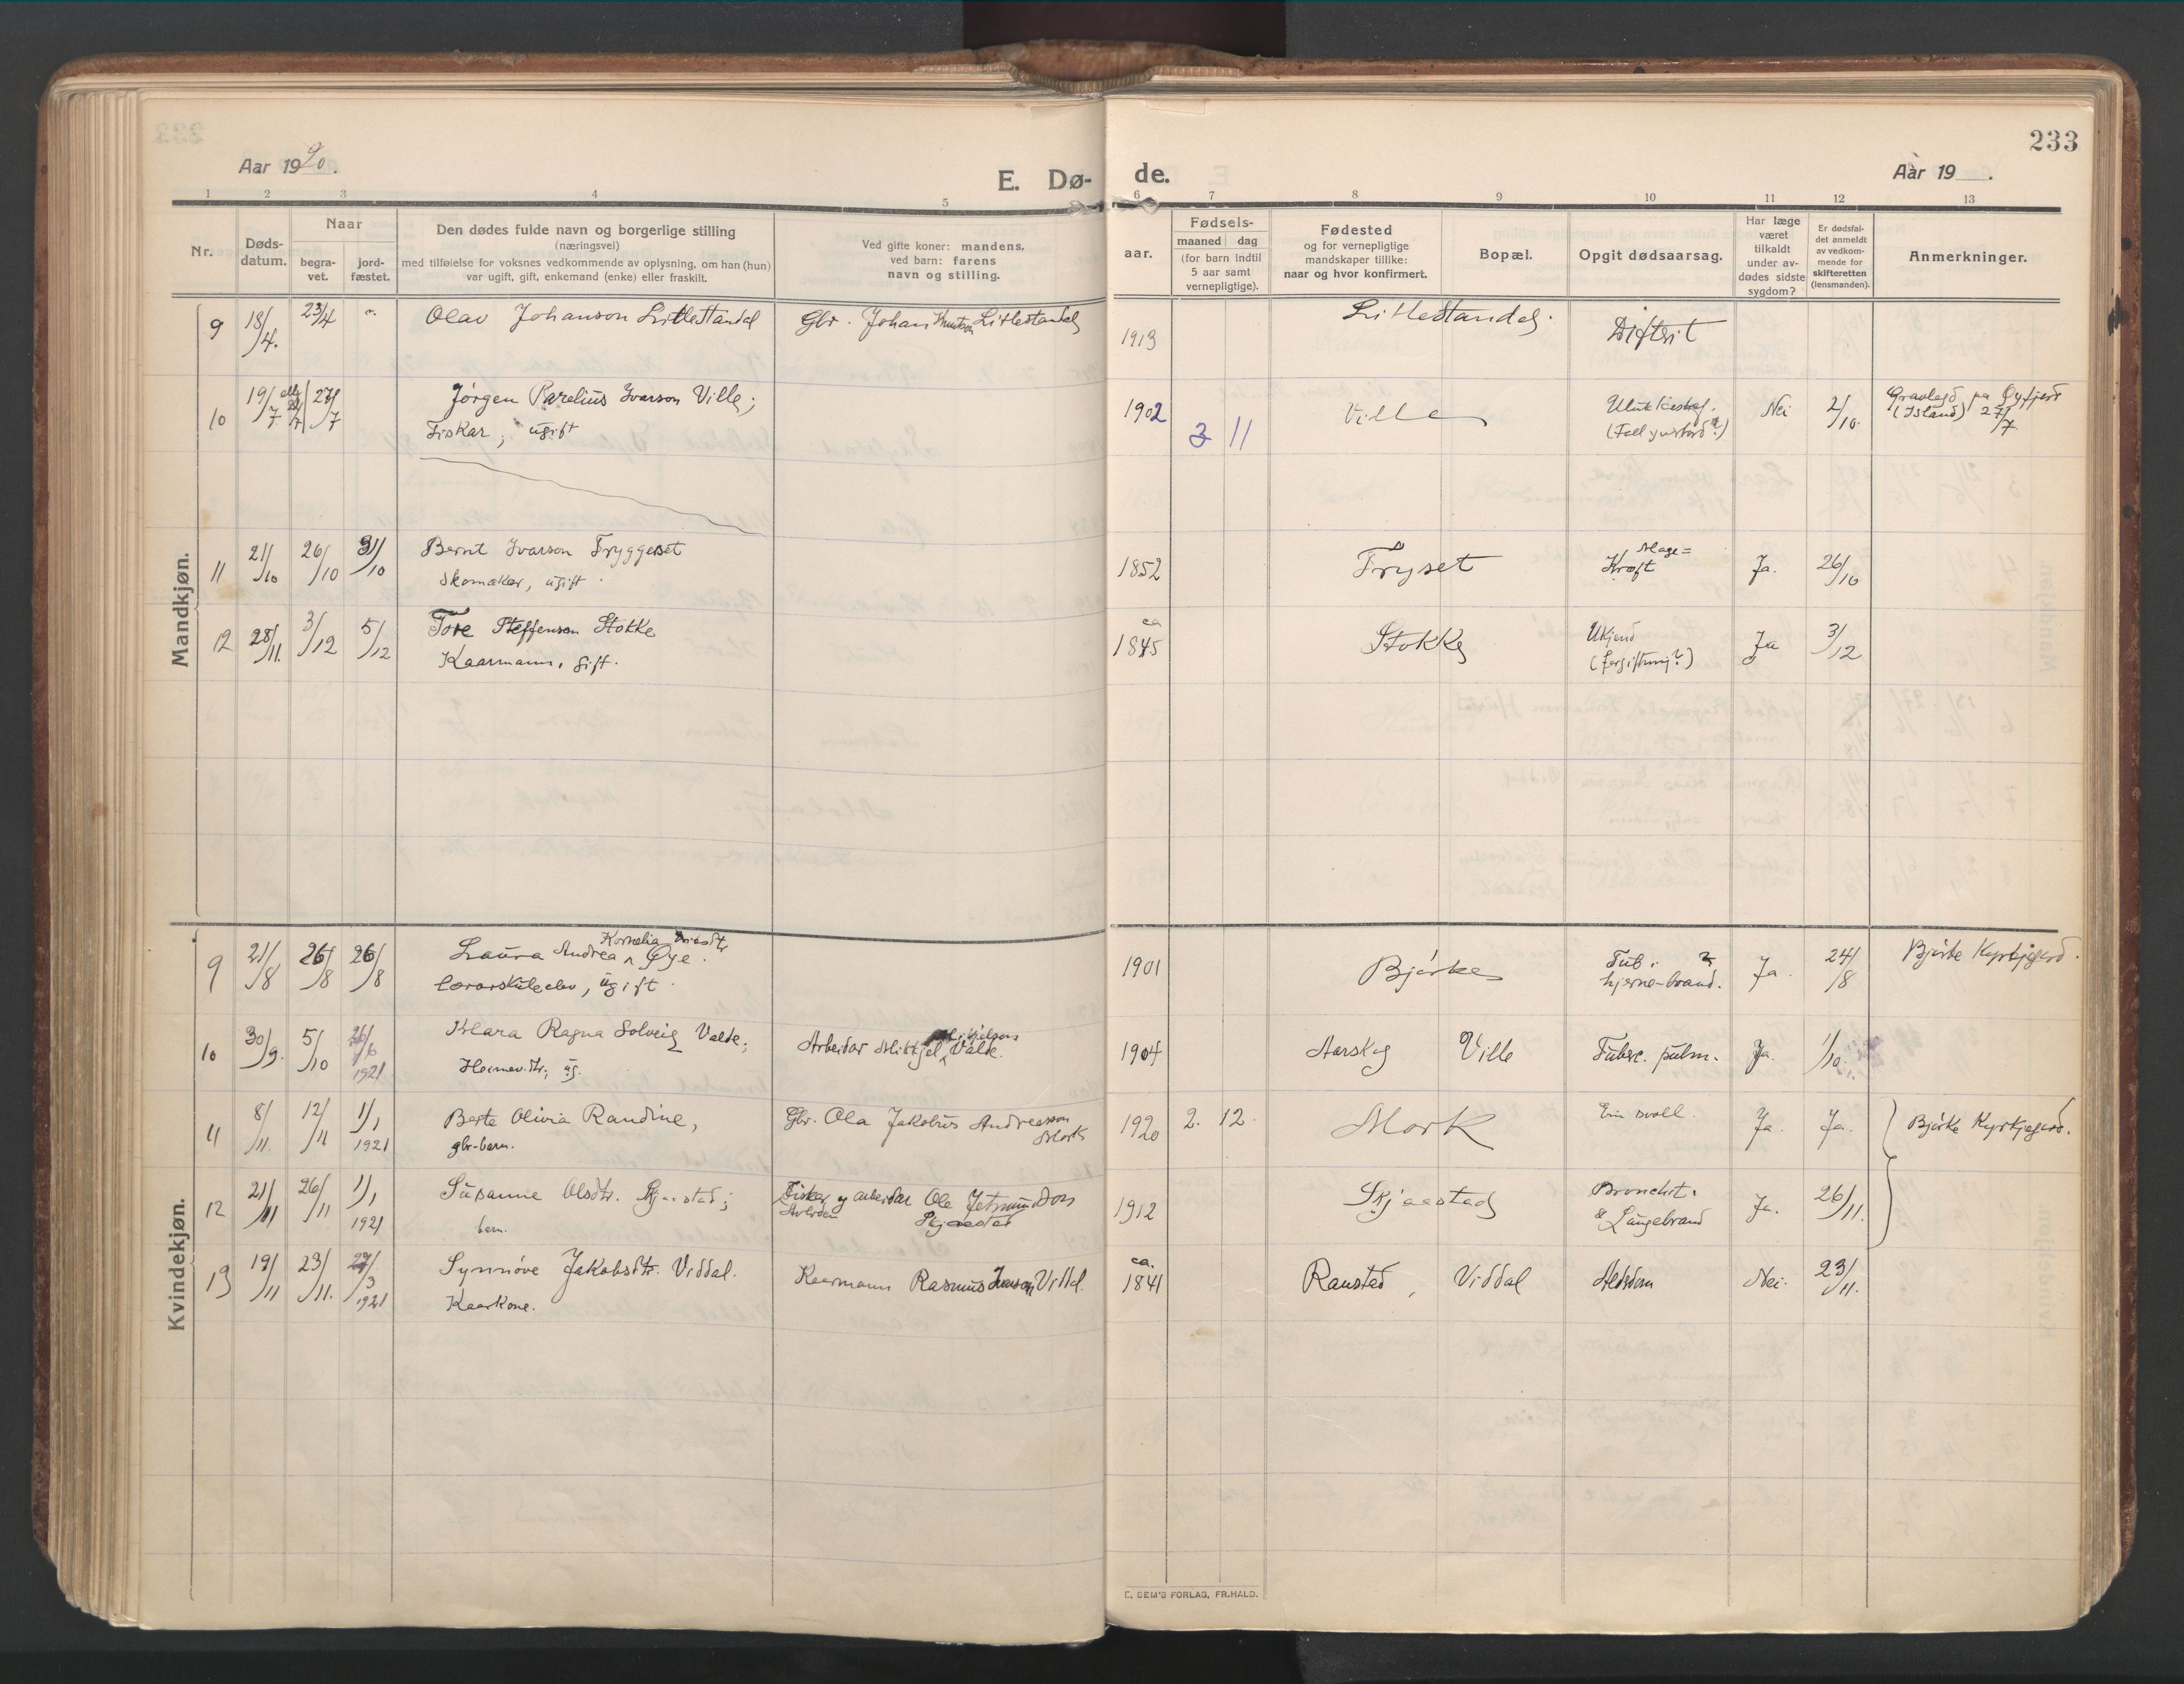 233
Aar 1920.
E. Dø-
de.
Aar 19 .
1 2 3 4 5 6 7 8 9 10 11 12 13
Nr.
Døds-
datum.
Naar
begra-
vet.
jord-
fæstet.
Den dødes fulde navn og borgerlige stilling
(næringsvei)
med tilføielse for voksnes vedkommende av oplysning, om han (hun)
var ugift, gift, enkemand (enke) eller fraskilt.
Ved gifte koner: mandens,
ved barn: farens
navn og stilling.
aar.
Fødsels-
maaned dag
(for barn indtil
5 aar samt
vernepligtige).
Fødested
og for vernepligtige
mandskaper tillike:
naar og hvor konfirmert.
Bopæl.
Opgit dødsaarsag.
Har læge
været
tilkaldt
under av-
dødes sidste
sygdom?
Er dødsfal-
det anmeldt
av vedkom-
mende for
skifteretten
(lensmanden).
Anmerkninger.
Mandkjøn.
9 18/4. 23/4 Olav Johanson Litlestandal Gbr. Johan Knutson Litlestandal 1913 Litlestandal. Difterit
10 19/7 27/7 Jørgen Karelius Ivarson Ville; 1902 3 11 Ville Nei 2/10. Gravlagd på Øyfjord
Fiskar, ugift (Island) 27/7
11 21/10 26/10 31/10 Bernt Ivarson Tryggeset 1852 Fryset Mage=
Skomakar, ugift. Kræft Ja. 26/10
12 28/11. 3/12 5/12 Tore Steffenson Stokke ca 1845 Stokke Ukjend Ja 3/12
Kaarmann, gift. (forgiftning?)
Kvindekjøn.
9 21/8 26/8 26/8 Laura Andrea Kornelia Øye. 1901 Bjørke Tub. ? Ja. 24/8 Bjørke Kyrkjegard.
lærarskuleelev, ugift. hjerne-brand.
10 30/9. 5/10 26/6 1921 Klara Ragna Solveig Valde; Arbeidar Mikkjel Valde. 1904 Aarskog Ville Tuberc. pulm. Ja. 1/10.
Heimev.dtr., ug.
11 8/11. 12/11 1/1 1921 Berte Olivia Randine, Gbr. Ola Jakobus Andreasson 1920 2. 12. Mork Ja. Ja. Bjørke Kyrkjegard.
gbr-barn. Mork
12 21/11 26/11 1/1 1921 Susanne Olsdtr. Skjaastad; Fiskar og arbeidar Ole Jetmundson 1912 Skjaastad Bronchit. Ja. 26/11.
barn. Skjaastad & Lungebrand
13 19/11 23/11. 27/3 1921 Synnøve Jakobsdtr. Viddal. Kaarmann Rasmus Viddal. ca. 1841 Ranstad, Viddal Aldrdom Nei. 23/11.
Kaarkone.
E. SEM'S FORLAG, FR.HALD.